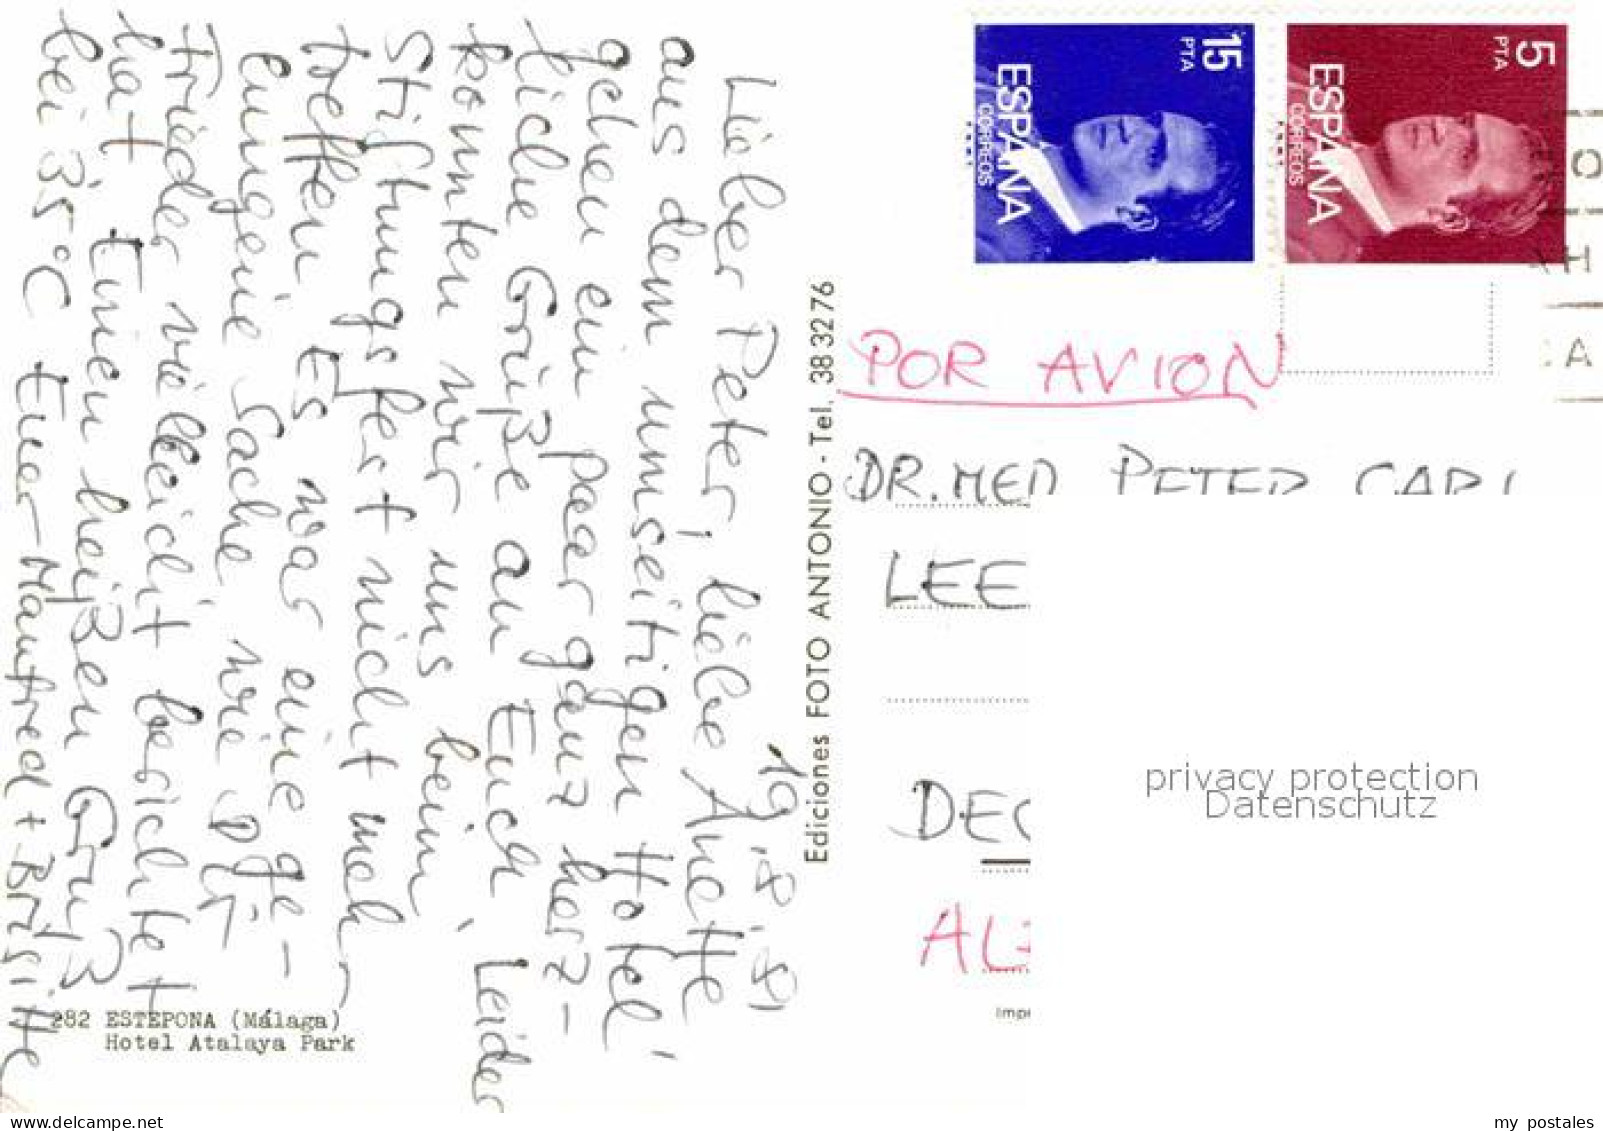 19.8.81
Lieber Peter, liebe Anette
aus dem umseitigen Hotel
gehen ein paar ganz herz-
liche Grüße an Euch. Leider
konnten wir uns beim
Stiftungsfest nicht mehr
treffen. Es war eine ge-
lungene Sache, wie Dir
Frieder vielleicht berichtet
hat. Einen heißen Gruß
bei 35°C Euer Manfred + Brigitte
282 ESTEPONA (Málaga)
Hotel Atalaya Park
Ediciones FOTO ANTONIO - Tel. 38 32 76
15 PTA
ESPAÑA
CORREOS
5 PTA
ESPAÑA
CORREOS
POR AVION
DR. MED PETER CARL
LEE
DEC
AL
Impr
privacy protection
Datenschutz
my postales
www.delcampe.net